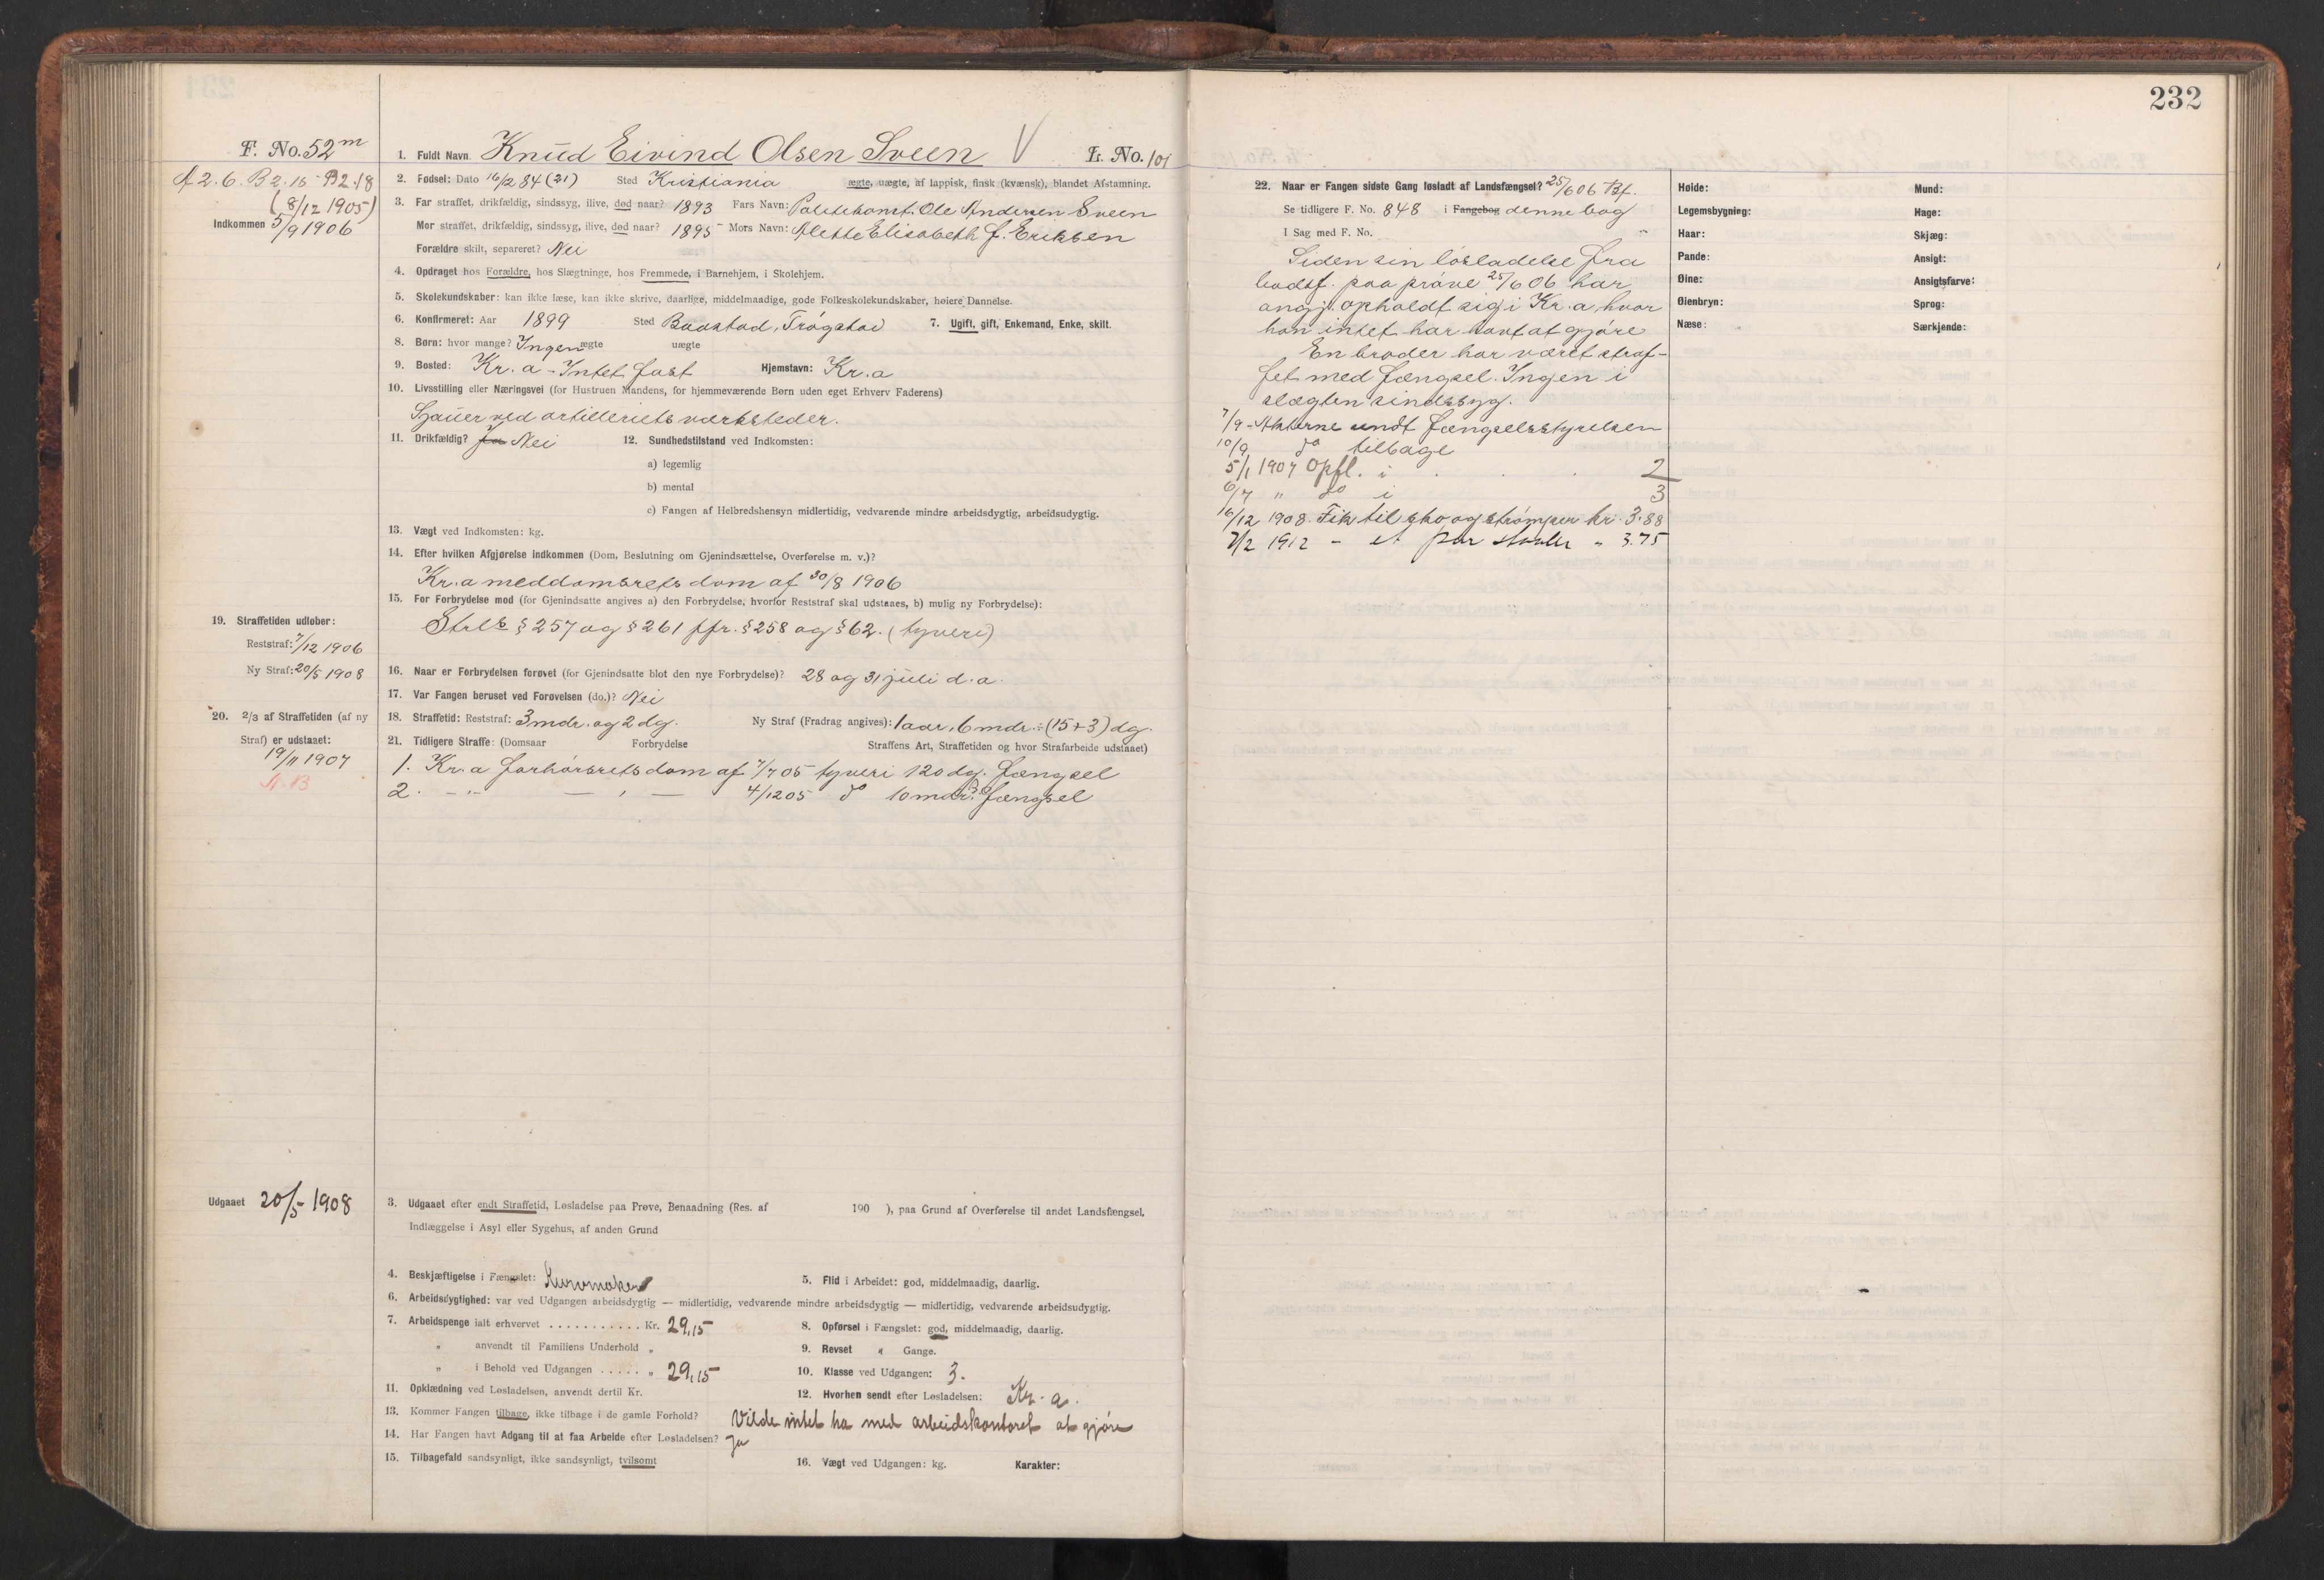 232
F. No. 52 m
1. Fuldt Navn Knud Eivind Olsen Sveen V L. No. 101
A 2. 6. B 2. 15 - B 2. 18
(8/12 1905)
Indkommen 5/9 1906
2. Fødsel: Dato 16/2 84 (21) Sted Kristiania ægte, uægte, af lappisk, finsk (kvænsk), blandet Afstamning.
3. Far straffet, drikfældig, sindssyg, ilive, død naar? 1893 Fars Navn: Politikonst. Ole Andersen Sveen
Mor straffet, drikfældig, sindssyg, ilive, død naar? 1895 Mors Navn: Alette Elisabeth f. Eriksen
Forældre skilt, separeret? Nei
4. Opdraget hos Forældre, hos Slægtninge, hos Fremmede, i Barnehjem, i Skolehjem.
5. Skolekundskaber: kan ikke læse, kan ikke skrive, daarlige, middelmaadige, gode Folkeskolekundskaber, høiere Dannelse.
6. Konfirmeret: Aar 1899 Sted Baastad, Trøgstad 7. Ugift, gift, Enkemand, Enke, skilt.
8. Børn: hvor mange? Ingen ægte uægte
9. Bosted: Kr.a - Intet fast Hjemstavn: Kr.a
10. Livsstilling eller Næringsvei (for Hustruen Mandens, for hjemmeværende Børn uden eget Erhverv Faderens)
Sjauer ved artilleriets værksteder.
11. Drikfældig? Ja Nei 12. Sundhedstilstand ved Indkomsten:
a) legemlig
b) mental
c) Fangen af Helbredshensyn midlertidig, vedvarende mindre arbeidsdygtig, arbeidsudygtig.
13. Vægt ved Indkomsten: kg.
14. Efter hvilken Afgjørelse indkommen (Dom, Beslutning om Gjenindsættelse, Overførelse m. v.)?
Kr.a meddomsrets dom af 30/8 1906
15. For Forbrydelse mod (for Gjenindsatte angives a) den Forbrydelse, hvorfor Reststraf skal udstaaes, b) mulig ny Forbrydelse):
Strls § 257 og § 261 jfr. § 258 og § 62. (tyveri)
19. Straffetiden udløber:
Reststraf: 7/12 1906
Ny Straf: 20/5 1908
16. Naar er Forbrydelsen forøvet (for Gjenindsatte blot den nye Forbrydelse)? 28 og 31 juli d. a.
17. Var Fangen beruset ved Forøvelsen (do.)? Nei
18. Straffetid: Reststraf: 3 mdr. og 2 dg. Ny Straf (Fradrag angives): 1 aar, 6 mdr. ÷ (15+3) dg.
20. 2/3 af Straffetiden (af ny
Straf) er udstaaet:
19/11 1907
A. 13
21. Tidligere Straffe: (Domsaar Forbrydelse Straffens Art, Straffetiden og hvor Strafarbeide udstaaet)
1. Kr.a forhørsrets dom af 7/7 05 tyveri 120 dg. fængsel
2. - " - - , - 4/12 05 do 10 mdr. fængsel
Udgaaet 20/5 1908
3. Udgaaet efter endt Straffetid, Løsladelse paa Prøve, Benaadning (Res. af 190 ), paa Grund af Overførelse til andet Landsfængsel,
Indlæggelse i Asyl eller Sygehus, af anden Grund
4. Beskjæftigelse i Fængslet: Kurvmaker 5. Flid i Arbeidet: god, middelmaadig, daarlig.
6. Arbeidsdygtighed: var ved Udgangen arbeidsdygtig — midlertidig, vedvarende mindre arbeidsdygtig — midlertidig, vedvarende arbeidsudygtig.
7. Arbeidspenge ialt erhvervet . . . . . . . . . . . Kr. 29,15 8. Opførsel i Fængslet: god, middelmaadig, daarlig.
" anvendt til Familiens Underhold " 9. Revset " Gange.
" i Behold ved Udgangen . . . . . " 29,15 10. Klasse ved Udgangen: 3.
11. Opklædning ved Løsladelsen, anvendt dertil Kr. 12. Hvorhen sendt efter Løsladelsen: Kr. a.
13. Kommer Fangen tilbage, ikke tilbage i de gamle Forhold? Vilde intet ha med arbeidskontoret at gjøre
14. Har Fangen havt Adgang til at faa Arbeide efter Løsladelsen? Ja
15. Tilbagefald sandsynligt, ikke sandsynligt, tvilsomt 16. Vægt ved Udgangen: kg. Karakter:
22. Naar er Fangen sidste Gang løsladt af Landsfængsel? 25/6 06 Bf.
Se tidligere F. No. 848 i Fangebog denne bog
I Sag med F. No. "
Siden sin løsladelse fra
bodsf. paa prøve 25/6 06 har
angj. opholdt sig i Kr.a, hvor
han intet har havt at gjøre
En broder har været straf-
fet med fængsel. Ingen i
slægten sindssyg.
7/9 - Akterne sendt fængselsstyrelsen
10/9 do tilbage
5/1 1907 Opfl. i . . . 2
6/7 " do i 3
16/12 1908. Fik til sko og strømper kr. 3.88
7/2 1912 - et par støvler " 3.75
Høide: Mund:
Legemsbygning: Hage:
Haar: Skjæg:
Pande: Ansigt:
Øine: Ansigtsfarve:
Øienbryn: Sprog:
Næse: Særkjende: